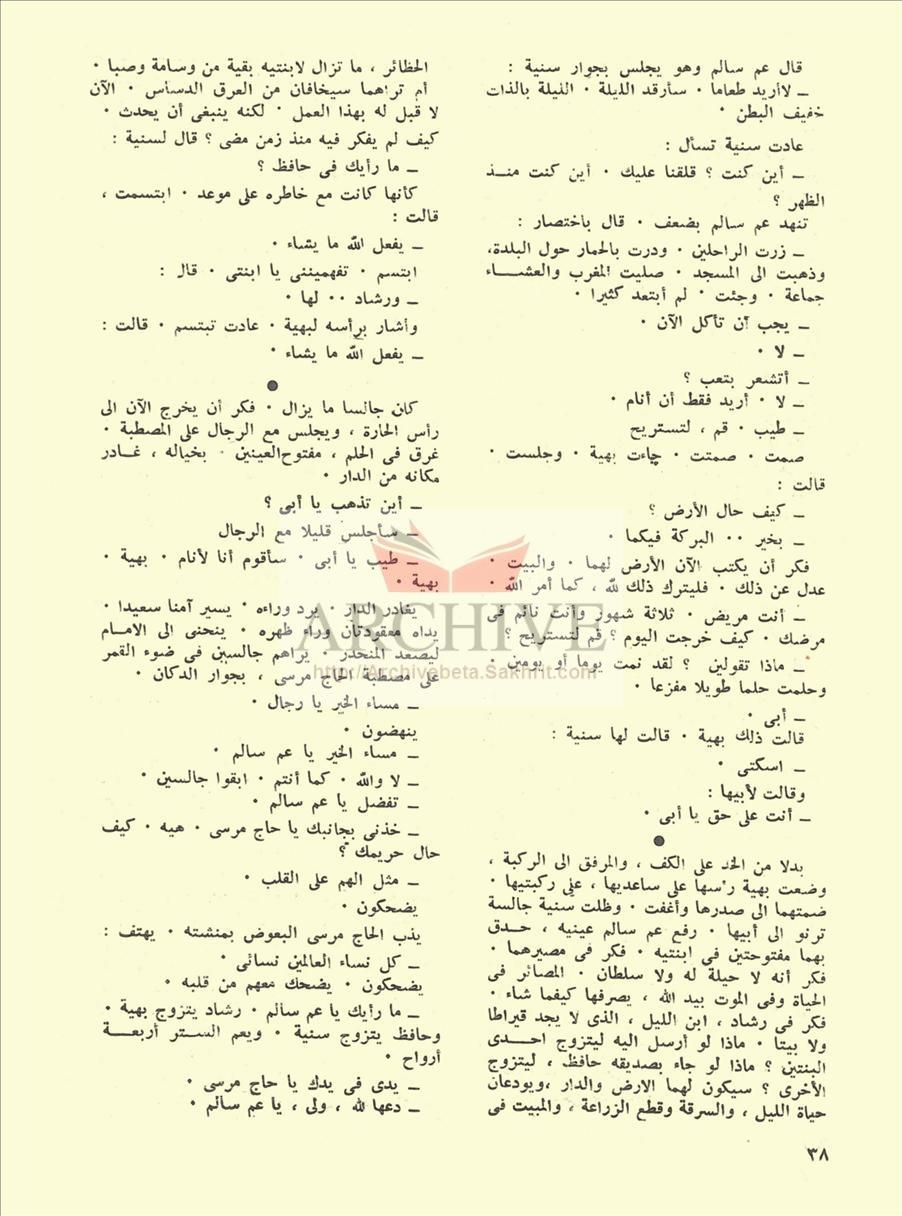 قال عم سالم وهو يجلس بجوار سنية :
ــ لاأريد طعاما · سأرقد الليلة · الليلة بالذات
خفيف البطن ·
عادت سنية تسأل :
ــ أين كنت ؟ قلقنا عليك · أين كنت منــذ
الظهر ؟
تنهد عم سالم بضعف · قال باختصار :
ــ زرت الراحلين · ودرت بالحمار حول البلدة،
وذهبت الى المسجد · صليت المغرب والعشــاء
جماعة · وجئت · لم أبتعد كثيرا ·
ــ يجب أن تأكل الآن ·
ــ لا ·
ــ أتشعر بتعب ؟
ــ لا · أريد فقط أن أنام ·
ــ طيب · قم ، لتستريح
صمت · صمتت · جاءت بهية · وجلست ·
قالت :
ــ كيف حال الأرض ؟
ــ بخير ·· البركة فيكما ·
فكر أن يكتب الآن الأرض لهما · والبيت ·
عدل عن ذلك · فليترك ذلك لله ، كما أمر الله ·
ــ أنت مريض · ثلاثة شهور وأنت نائم فى
مرضك · كيف خرجت اليوم ؟ قم لتستريح ؟
ــ ماذا تقولين ؟ لقد نمت يوما أو يومين ·
وحلمت حلما طويلا مفزعا ·
ــ أبى ·
قالت ذلك بهية · قالت لها سنية :
ــ اسكتى ·
وقالت لأبيها :
ــ أنت على حق يا أبى ·
●
بدلا من الخد على الكف ، والمرفق الى الركبة ،
وضعت بهية رأسها على ساعديها ، على ركبتيها ·
ضمتهما الى صدرها وأغفت · وظلت سنية جالسة
ترنو الى أبيها · رفع عم سالم عينيه ، حــدق
بهما مفتوحتين فى ابنتيه · فكر فى مصيرهما ·
فكر أنه لا حيلة له ولا سلطان · المصائر فى
الحياة وفى الموت بيد الله ، يصرفها كيفما شاء ·
فكر فى رشاد ، ابن الليل ، الذى لا يجد قيراطا
ولا بيتا · ماذا لو أرسل اليه ليتزوج احــدى
البنتين ؟ ماذا لو جاء بصديقه حافظ ، ليتزوج
الأخرى ؟ سيكون لهما الارض والدار ،ويودعان
حياة الليل ، والسرقة وقطع الزراعة ، والمبيت فى
الحظائر ، ما تزال لابنتيه بقية من وسامة وصبا ·
أم تراهما سيخافان من العرق الدساس · الآن
لا قبل له بهذا العمل · لكنه ينبغى أن يحدث ·
كيف لم يفكر فيه منذ زمن مضى ؟ قال لسنية :
ــ ما رأيك فى حافظ ؟
كأنها كانت مع خاطره على موعد · ابتسمت ،
قالت :
ــ يفعل الله ما يشاء ·
ابتسم · تفهميننى يا ابنتى · قال :
ــ ورشاد ·· لها ·
وأشار برأسه لبهية · عادت تبتسم · قالت :
ــ يفعل الله ما يشاء ·
●
كان جالسا ما يزال · فكر أن يخرج الآن الى
رأس الحارة ، ويجلس مع الرجال على المصطبة ·
غرق فى الحلم ، مفتوح العينين · بخياله ، غــادر
مكانه من الدار ·
ــ أين تذهب يا أبى ؟
ــ سأجلس قليلا مع الرجال
ــ طيب يا أبى · سأقوم أنا لأنام · بهية ·
بهية ·
يغادر الدار · يرد وراءه · يسير آمنا سعيدا ·
يداه معقودتان وراء ظهره · ينحنى الى الامــام
ليصعد المنحدر · يراهم جالسين فى ضوء القمر
على مصطبة الحاج مرسى ، بجوار الدكان ·
ــ مساء الخير يا رجال ·
ينهضون ·
ــ مساء الخير يا عم سالم ·
ــ لا والله · كما أنتم · ابقوا جالسين ·
ــ تفضل يا عم سالم ·
ــ خذنى بجانبك يا حاج مرسى · هيه · كيف
حال حريمك ؟
ــ مثل الهم على القلب ·
يضحكون ·
يذب الحاج مرسى البعوض بمنشته · يهتف :
ــ كل نساء العالمين نسائى ·
يضحكون · يضحك معهم من قلبه ·
ــ ما رأيك يا عم سالم · رشاد يتزوج بهية ·
وحافظ يتزوج سنية · ويعم الستر أربعــة
أرواح ·
ــ يدى فى يدك يا حاج مرسى ·
ــ دعها لله ، ولى ، يا عم سالم ·
٣٨
ARCHIVE
http://Archivebeta.Sakhrit.com